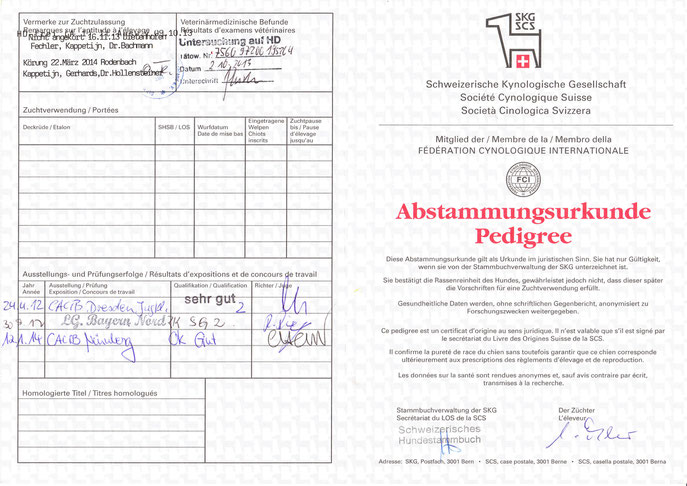 Vermerke zur Zuchtzulassung
Remarques sur l'aptitude à l'élevage
Nicht angekört 16.11.13 Dietenhofen
Fechler, Kappetijn, Dr.Bachmann
Körung 22.März 2014 Rodenbach
Kappetijn, Gerhards,Dr.Hollensteiner
Veterinärmedizinische Befunde
Résultats d'examens vétérinaires
Untersuchung auf HD
Tätow. Nr.
Datum 2.10.2013
Unterschrift
Zuchtverwendung / Portées
Deckrüde / Etalon
SHSB / LOS
Wurfdatum
Date de mise bas
Eingetragene
Welpen
Chiots
inscrits
Zuchtpause
bis / Pause
d'élevage
jusqu'au
Ausstellungs- und Prüfungserfolge / Résultats d'expositions et de concours de travail
Jahr
Année
Ausstellung / Prüfung
Exposition / Concours de travail
Qualifikation / Qualification
Richter / Juge
24.4.12 CACIB Dresden sehr gut 2
LG. Bayern Nord JK SG 2
12.1.14 CACIB Nürnberg OK Gut
Homologierte Titel / Titres homologués
SKG
SCS
Schweizerische Kynologische Gesellschaft
Société Cynologique Suisse
Società Cinologica Svizzera
Mitglied der / Membre de la / Membro della
FÉDÉRATION CYNOLOGIQUE INTERNATIONALE
FCI
Abstammungsurkunde
Pedigree
Diese Abstammungsurkunde gilt als Urkunde im juristischen Sinn. Sie hat nur Gültigkeit,
wenn sie von der Stammbuchverwaltung der SKG unterzeichnet ist.
Sie bestätigt die Rassenreinheit des Hundes, gewährleistet jedoch nicht, dass dieser später
die Vorschriften für eine Zuchtverwendung erfüllt.
Gesundheitliche Daten werden, ohne schriftlichen Gegenbericht, anonymisiert zu
Forschungszwecken weitergegeben.
Ce pedigree est un certificat d'origine au sens juridique. Il n'est valable que s'il est signé par
le secrétariat du Livre des Origines Suisse de la SCS.
Il confirme la pureté de race du chien sans toutefois garantir que ce chien corresponde
ultérieurement aux prescriptions des règlements d'élevage et de reproduction.
Les données sur la santé sont rendues anonymes et, sauf avis contraire par écrit,
transmises à la recherche.
Stammbuchverwaltung der SKG
Secrétariat du LOS de la SCS
Schweizerisches
Hundestammbuch
Der Züchter
L'éleveur
Adresse: SKG, Postfach, 3001 Bern • SCS, case postale, 3001 Berne • SCS, casella postale, 3001 Berna